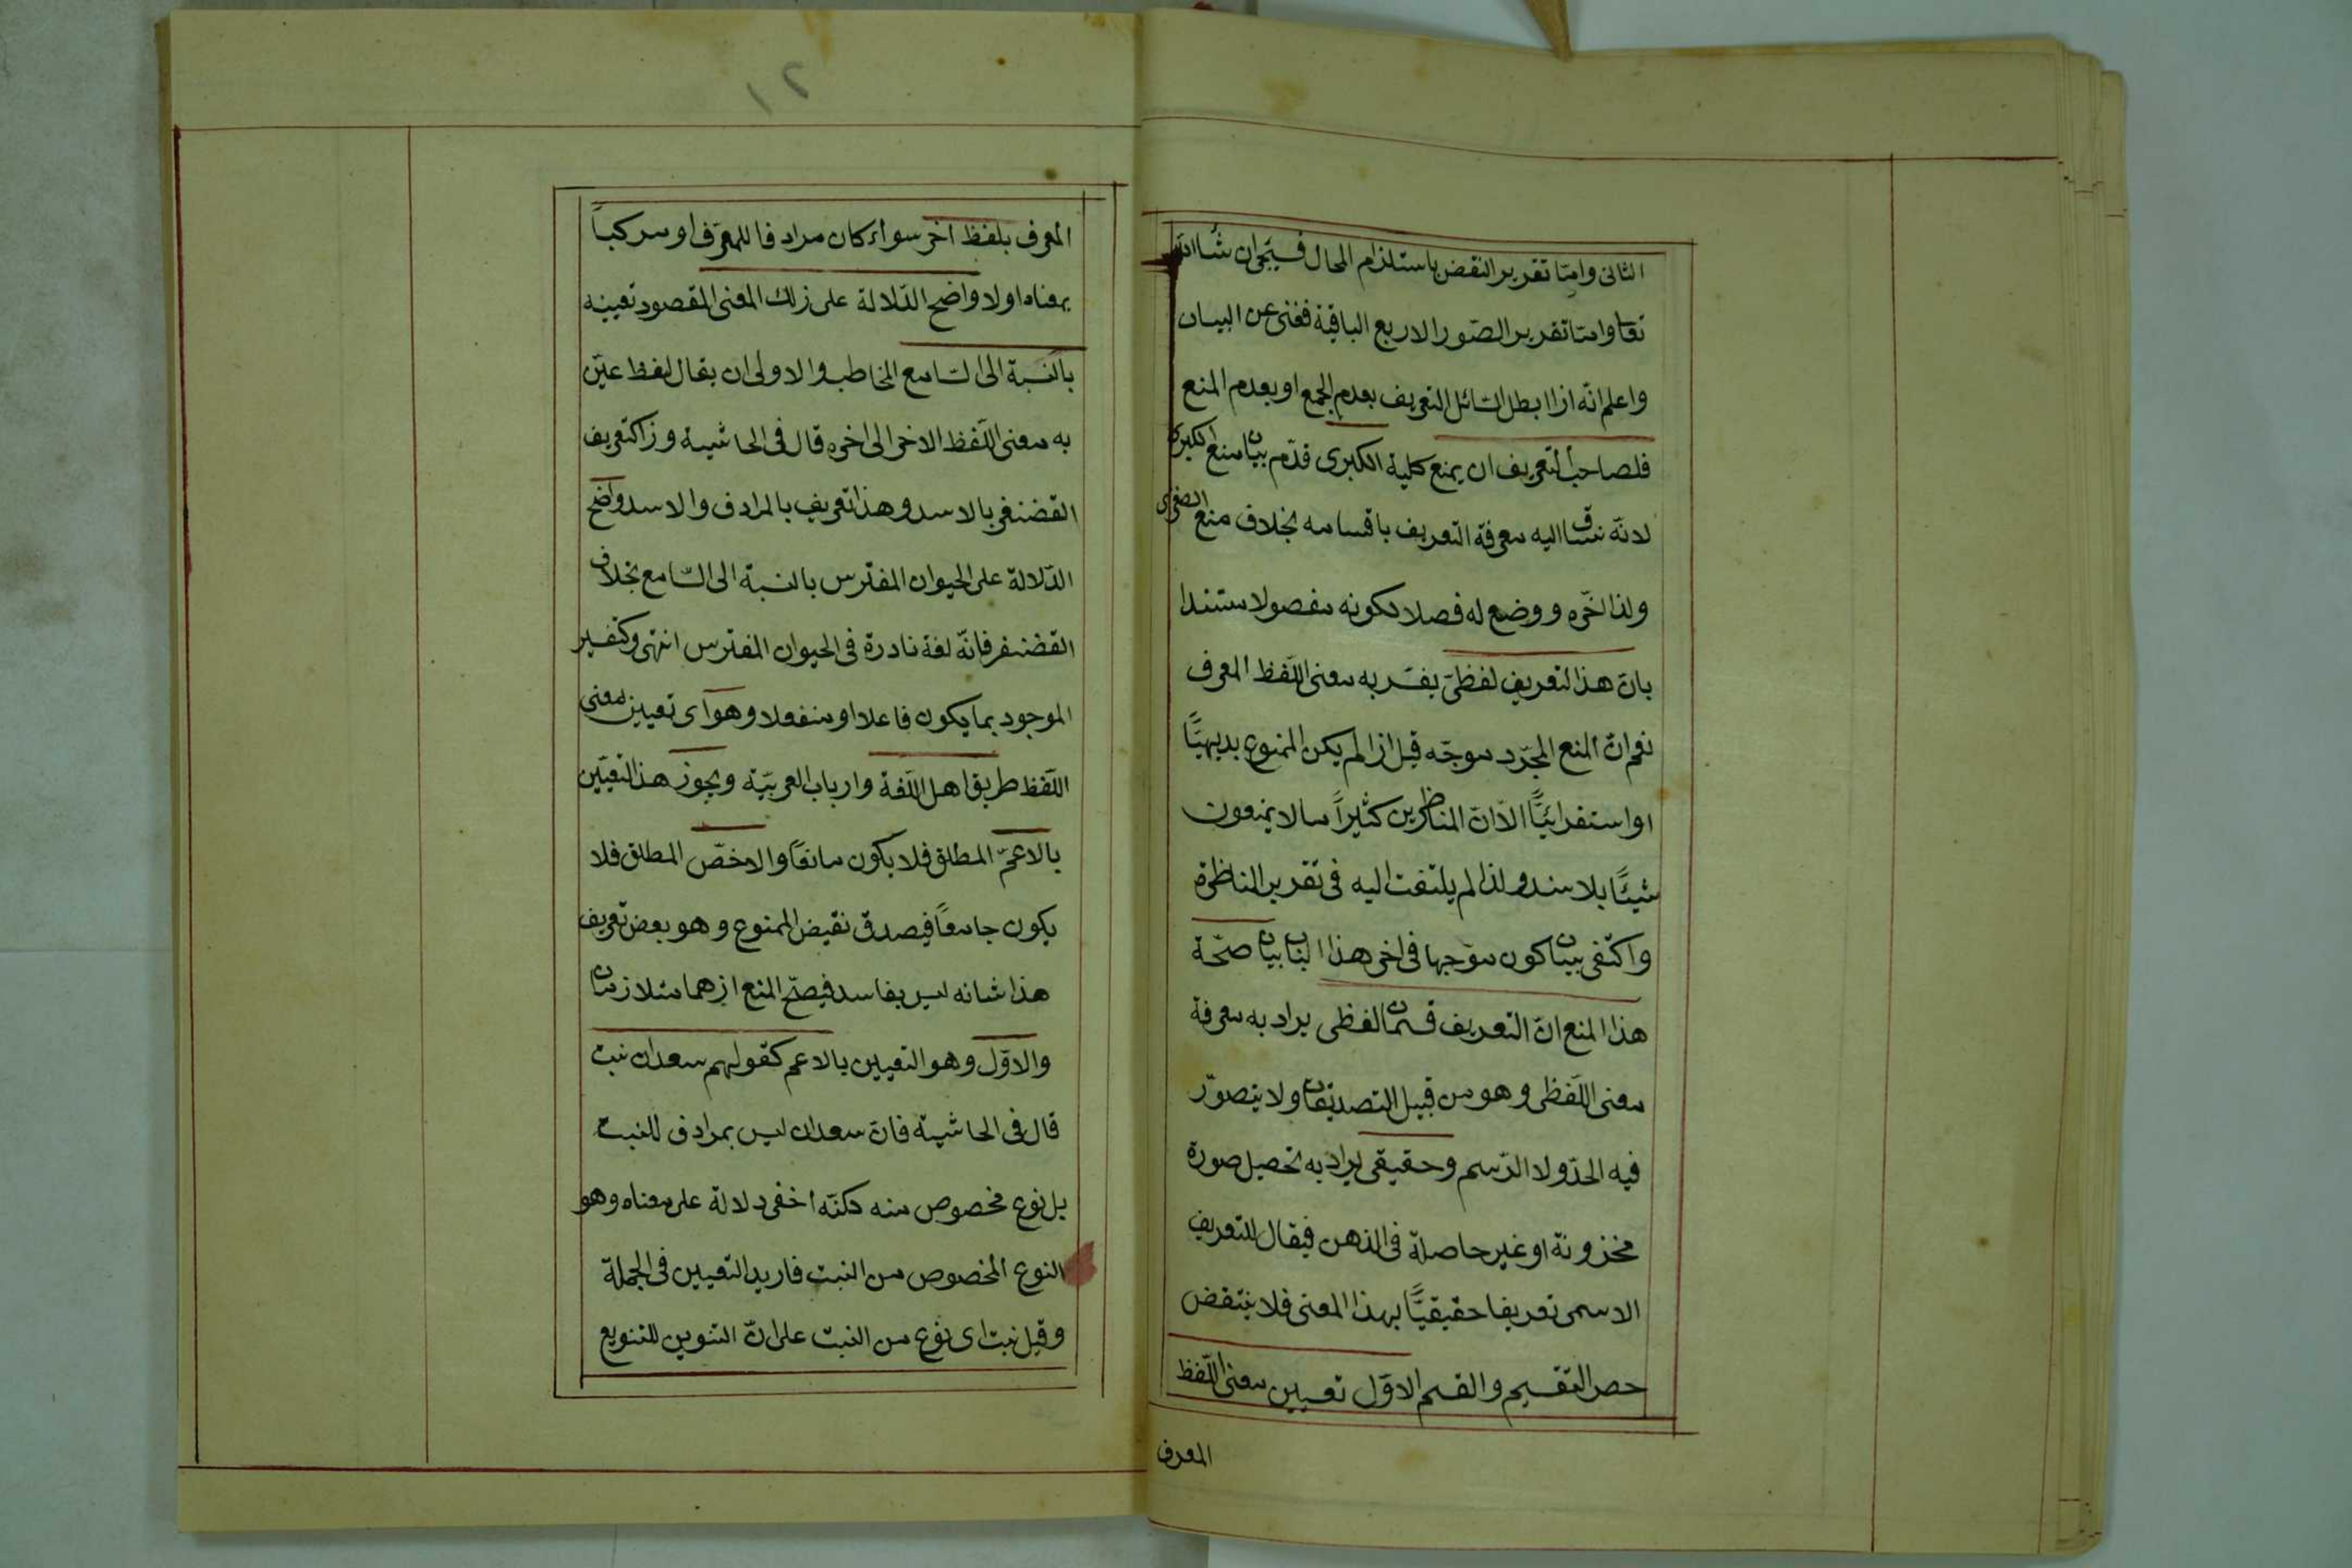 الثانى وامّا تقرير النقض باستلزام المحال فسيجئ ان شاء الله
تعا وامّا تقرير الصّور الاربع الباقية فغنى عن البيان
واعلم انّه اذا ابطل السّائل التعريف بعدم الجمع او بعدم المنع
فلصاحب التعريف ان يمنع كلية الكبرى قدّم بيان منع الكبرى
لانّه ينساق اليه معرفة التعريف باقسامه بخلاف منع الصغرى
ولذا اخّره ووضع له فصلا لكونه مفصولا مستندا
بانّ هذا التعريف لفظىّ يفسّر به معنى اللّفظ المعرف
نعم انّ المنع المجرّد موجّه قبل اذا لم يكن الممنوع بديهيًّا
او استقرائيًّا الّا انّ المناظرين كثيراً ما لا يمنعون
شيئًا بلا سند ولذا لم يلتفت اليه فى تقرير المناظرة
واكتفى ببيان كون موجها فى اخر هذا الباب بيان صحّة
هذا المنع انّ التعريف قسمان لفظى يراد به معرفة
معنى اللّفظى وهو من قبيل التصديقات ولا يتصوّر
فيه الحدّ ولا الرّسم وحقيقى يراد به تحصيل صورة
مخزونة او غير حاصلة فى الذهن فيقال للتعريف
الاسمى تعريفا حقيقيًّا بهذا المعنى فلا ينتقض
حصر التقسيم والقسم الاوّل تعيين معنى اللّفظ
المعرف
١٢
المعرف بلفظ اخر سواء كان مرادفا للمعرّف او مركباً
بمعناه اولا واضح الدّلالة على ذلك المعنى المقصود تعيينه
بالنّسبة الى السّامع المخاطب والاولى ان يقال لفظ عيّن
به معنى اللّفظ الاخر الى اخره قال فى الحاشية وذا كتعريف
الغضنفر بالاسد وهذا تعريف بالمرادف والاسد واضح
الدّلالة على الحيوان المفترس بالنسبة الى السّامع بخلاف
الغضنفر فانّه لغة نادرة فى الحيوان المفترس انتهى وكتفسير
الموجود بما يكون فاعلا او منفعلا وهو اى تعيين معنى
اللّفظ طريق اهل اللّغة وارباب العربيّة ويجوز هذا التعيّين
بالاعمّ المطلق فلا يكون مانعًا والاخصّ المطلق فلا
يكون جامعًا فيصدق نقيض الممنوع وهو بعض تعريف
هذا شانه ليس بفاسد فيصحّ المنع اذ هما متلازمان
والاوّل وهو التعيين بالاعم كقولهم سعدان نبت
قال فى الحاشية فانّ سعدان ليس بمرادف للنبت
بل نوع مخصوص منه لكنّه اخفى دلالة على معناه وهو
النوع المخصوص من النبت فاريد التعيين فى الجملة
وقيل نبت اى نوع من النبت على انّ التنوين للتنويع